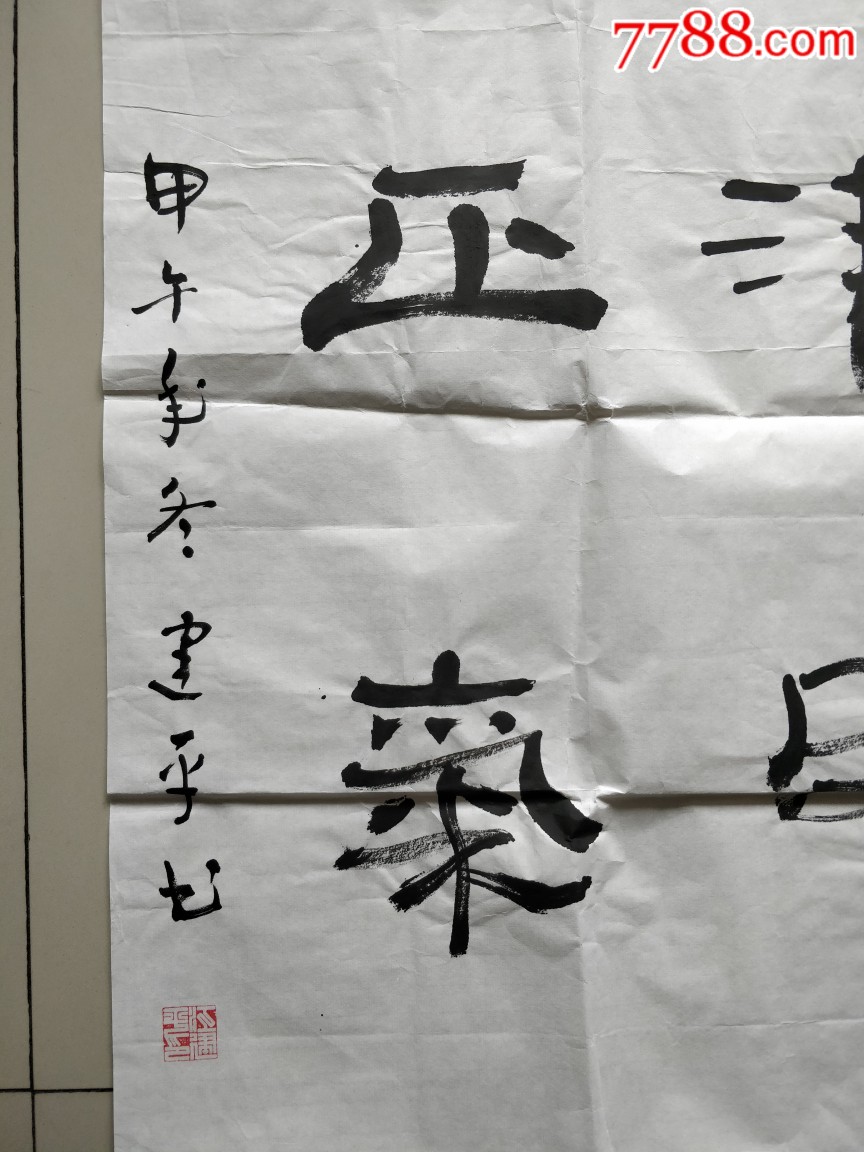 7788.com
正氣
甲午年冬建平书